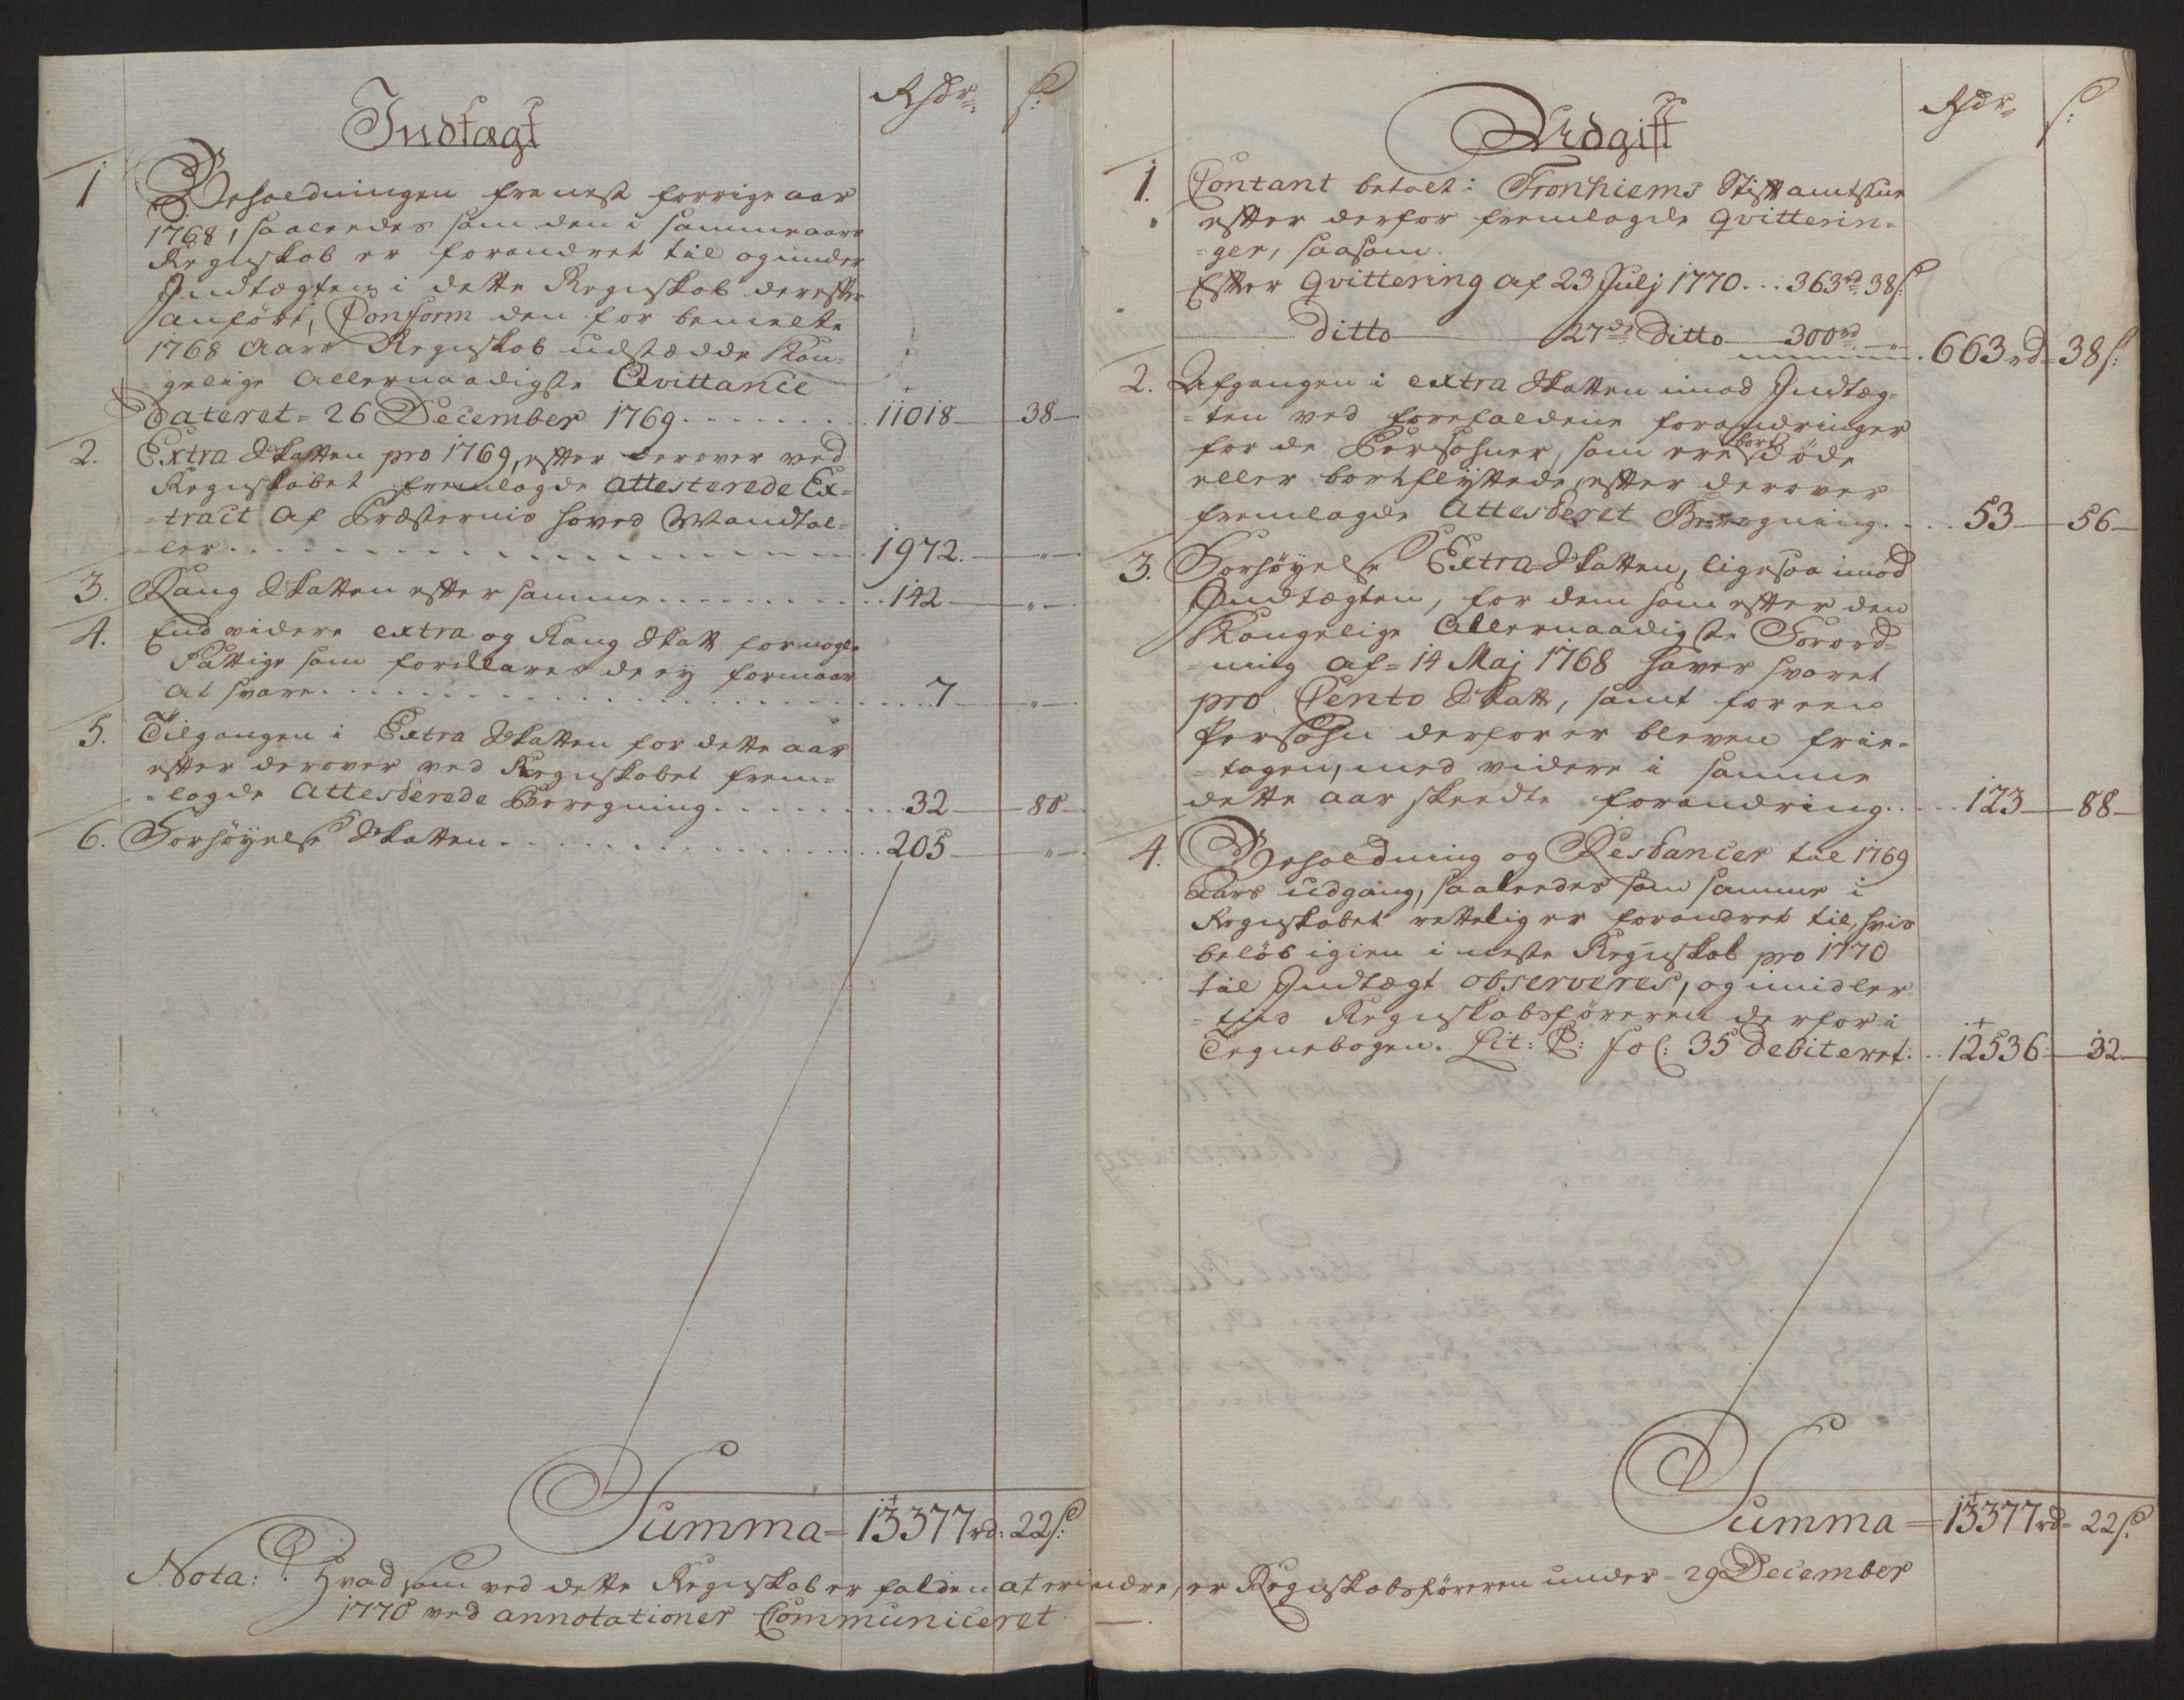 Indtægt
Rhdr: ſ:
1 Beholdningen fra nest forrige aar
1768, saaledes som den i samme aars
Regnskob er forandret til og under
Indtægten i dette Regnskob derefter
anført, Conform den for bemelte
1768 Aars Regnskob udstædde Kon-
gelige Allernaadigste Qvittance
Dateret= 26 December 1769 . . . . . . . 11018 — 38 —
2. Extra Skatten pro 1769, efter derover ved
Regnskabet fremlagde Attesterede Ex-
-tract af Præsternis Hoved Mandtal-
-ler . . . . . . . . . . . . 1972. — „ —
3. Rang Skatten efter samme . . . . . . . . 142 — „ —
4. End videre extra og Rang Skatt for nogle
Fattige som forklares de ey formaar
at svare . . . . . . . . . . . . 7 — „ —
5. Tilgangen i Extra Skatten for dette aar
efter derover ved Regnskabet frem-
-lagde Attesterede Beregning . . . . . . . 32 — 80 —
6. Forhøyelse Skatten . . . . . . . . . . . 205 — „ —
Summa = 13377 rd: 22 ſ:
Udgift
Rhdr: ſ:
1. Contant betalt i Tronhiems Stiftamtstue
efter derfor fremlagde qvitterin-
-ger, saasom.
Efter qvittering af 23 Julj 1770 . . . 363 rd 38 ſ:
— Ditto — 27de Ditto — 300 rd — „ — 663 rd = 38 ſ:
2. Afgangen i extra Skatten imod Indtæg-
-ten ved forefaldene forandringer
for de Persohner, som ere bort døde
eller bortflyttede, efter derover
fremlagde Attesteret Beregning . . . . 53 — 56 —
3. Forhøyelse Extra Skatten, ligesaa imod
Indtægten, for dem som efter den
Kongelige Allernaadigste Forord-
-ning af = 14 Maj 1768 haver svaret
pro Cento Skatt, samt for een
Persohn derfor er bleven frie-
-tagen, med videre i samme
dette aar skeedte forandring . . . . 123 — 88 —
4. Beholdning og Restancer til 1769
Aars udgang, saaledes som samme i
Regnskabet rettelig er forandret til, hvis
beløb igien i neste Regnskab pro 1770
til Indtægt observeres, og imidler-
-tiid Regnskabsføreren derfor i
Tegnebogen. Lit: C: fol: 35 debiteret . . 12536 — 32 —
Summa = 13377 rd = 22 ſ:
Nota: Hvad som ved dette Regnskab er falden at erindre, er Regnskabsføreren under = 29 December
1770 ved annotationer Communiceret —.